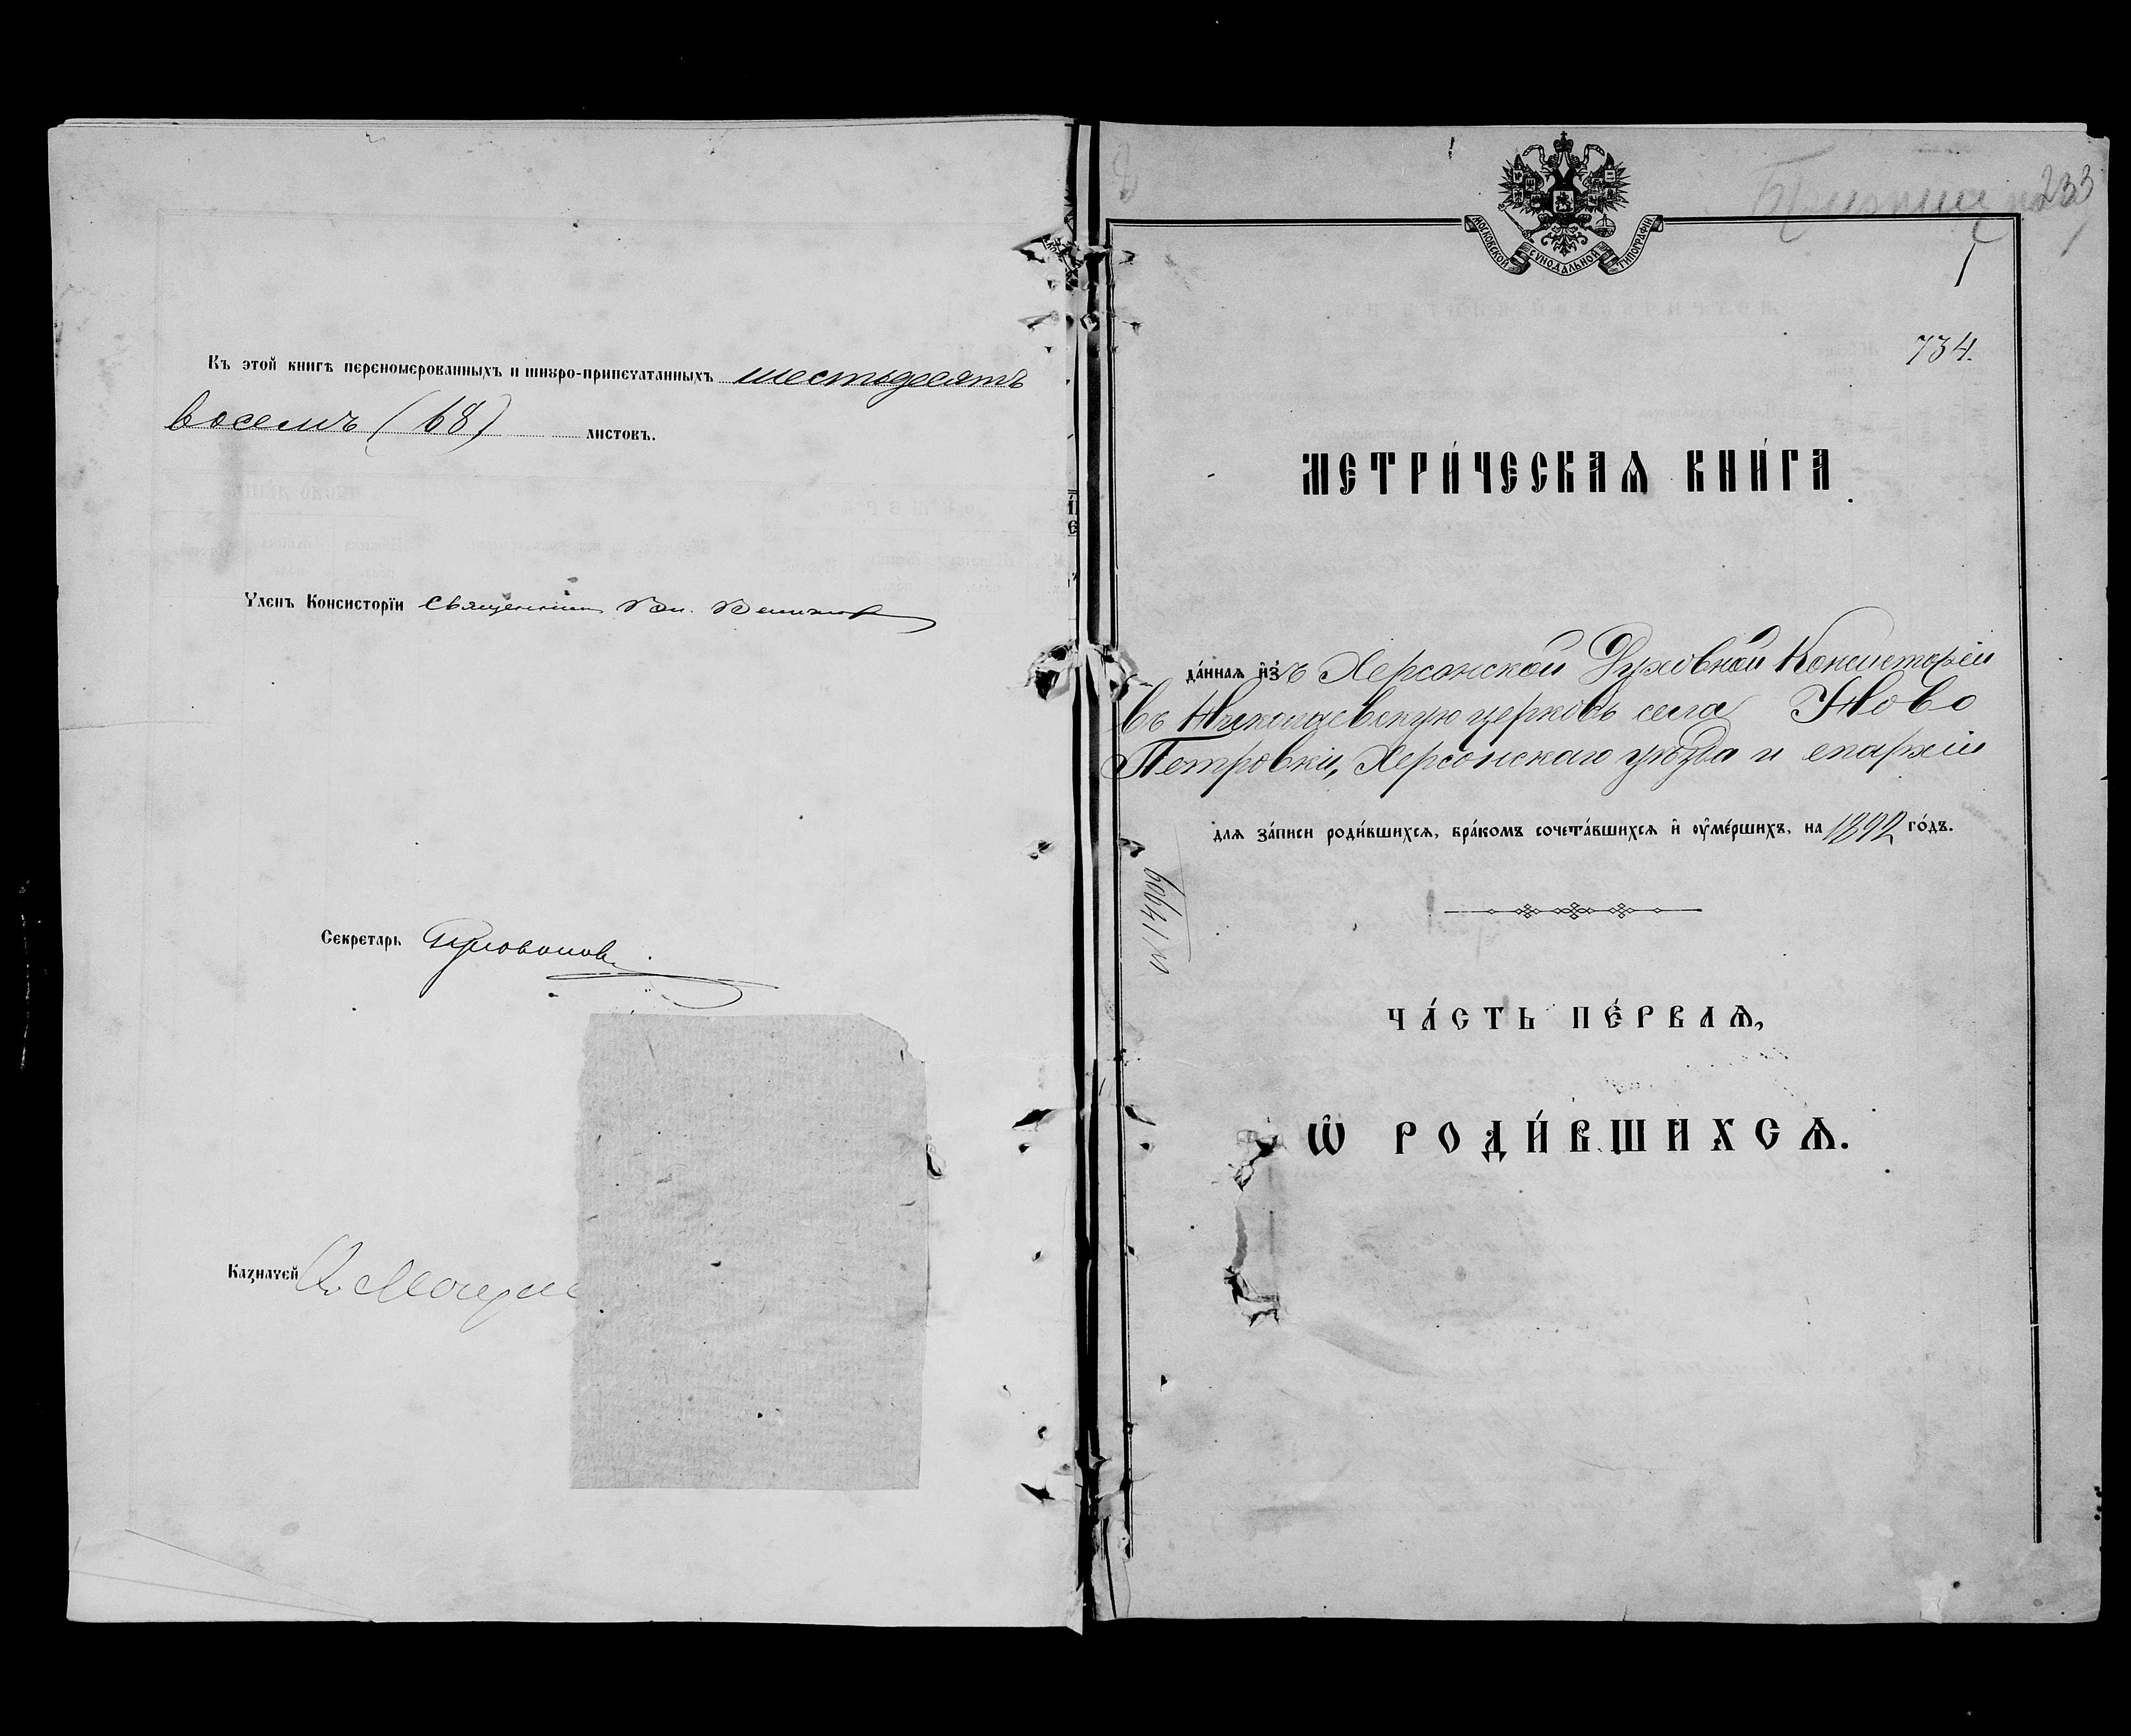 Къ этой книгѣ переномерованныхъ и шнуро-припечатанныхъ шестьдесятъ
восемъ (68) листовъ.
Членъ Консисторїи священникъ Вл.
Секретарь
Казначей
233
МОСКОВСКОЙ СѴНОДАЛЬНОЙ ТИПОГРАФІИ
1
734.
МЕТРИ́ЧЕСКАѦ КНИ́ГА
да́ннаѧ и҆зъ Херсонской Духовной Консисторіи
въ Николаевскую церковь села Ново
Петровки, Херсонскаго уѣзда и епархіи
длѧ за́писи роди́вшихсѧ, бра́комъ сочета́вшихсѧ и҆ ᲂу҆ме́ршихъ, на 1892 го́дъ.
ЧА́СТЬ ПЕ́РВАѦ,
Ѡ҆ РОДИ́ВШИХСѦ.